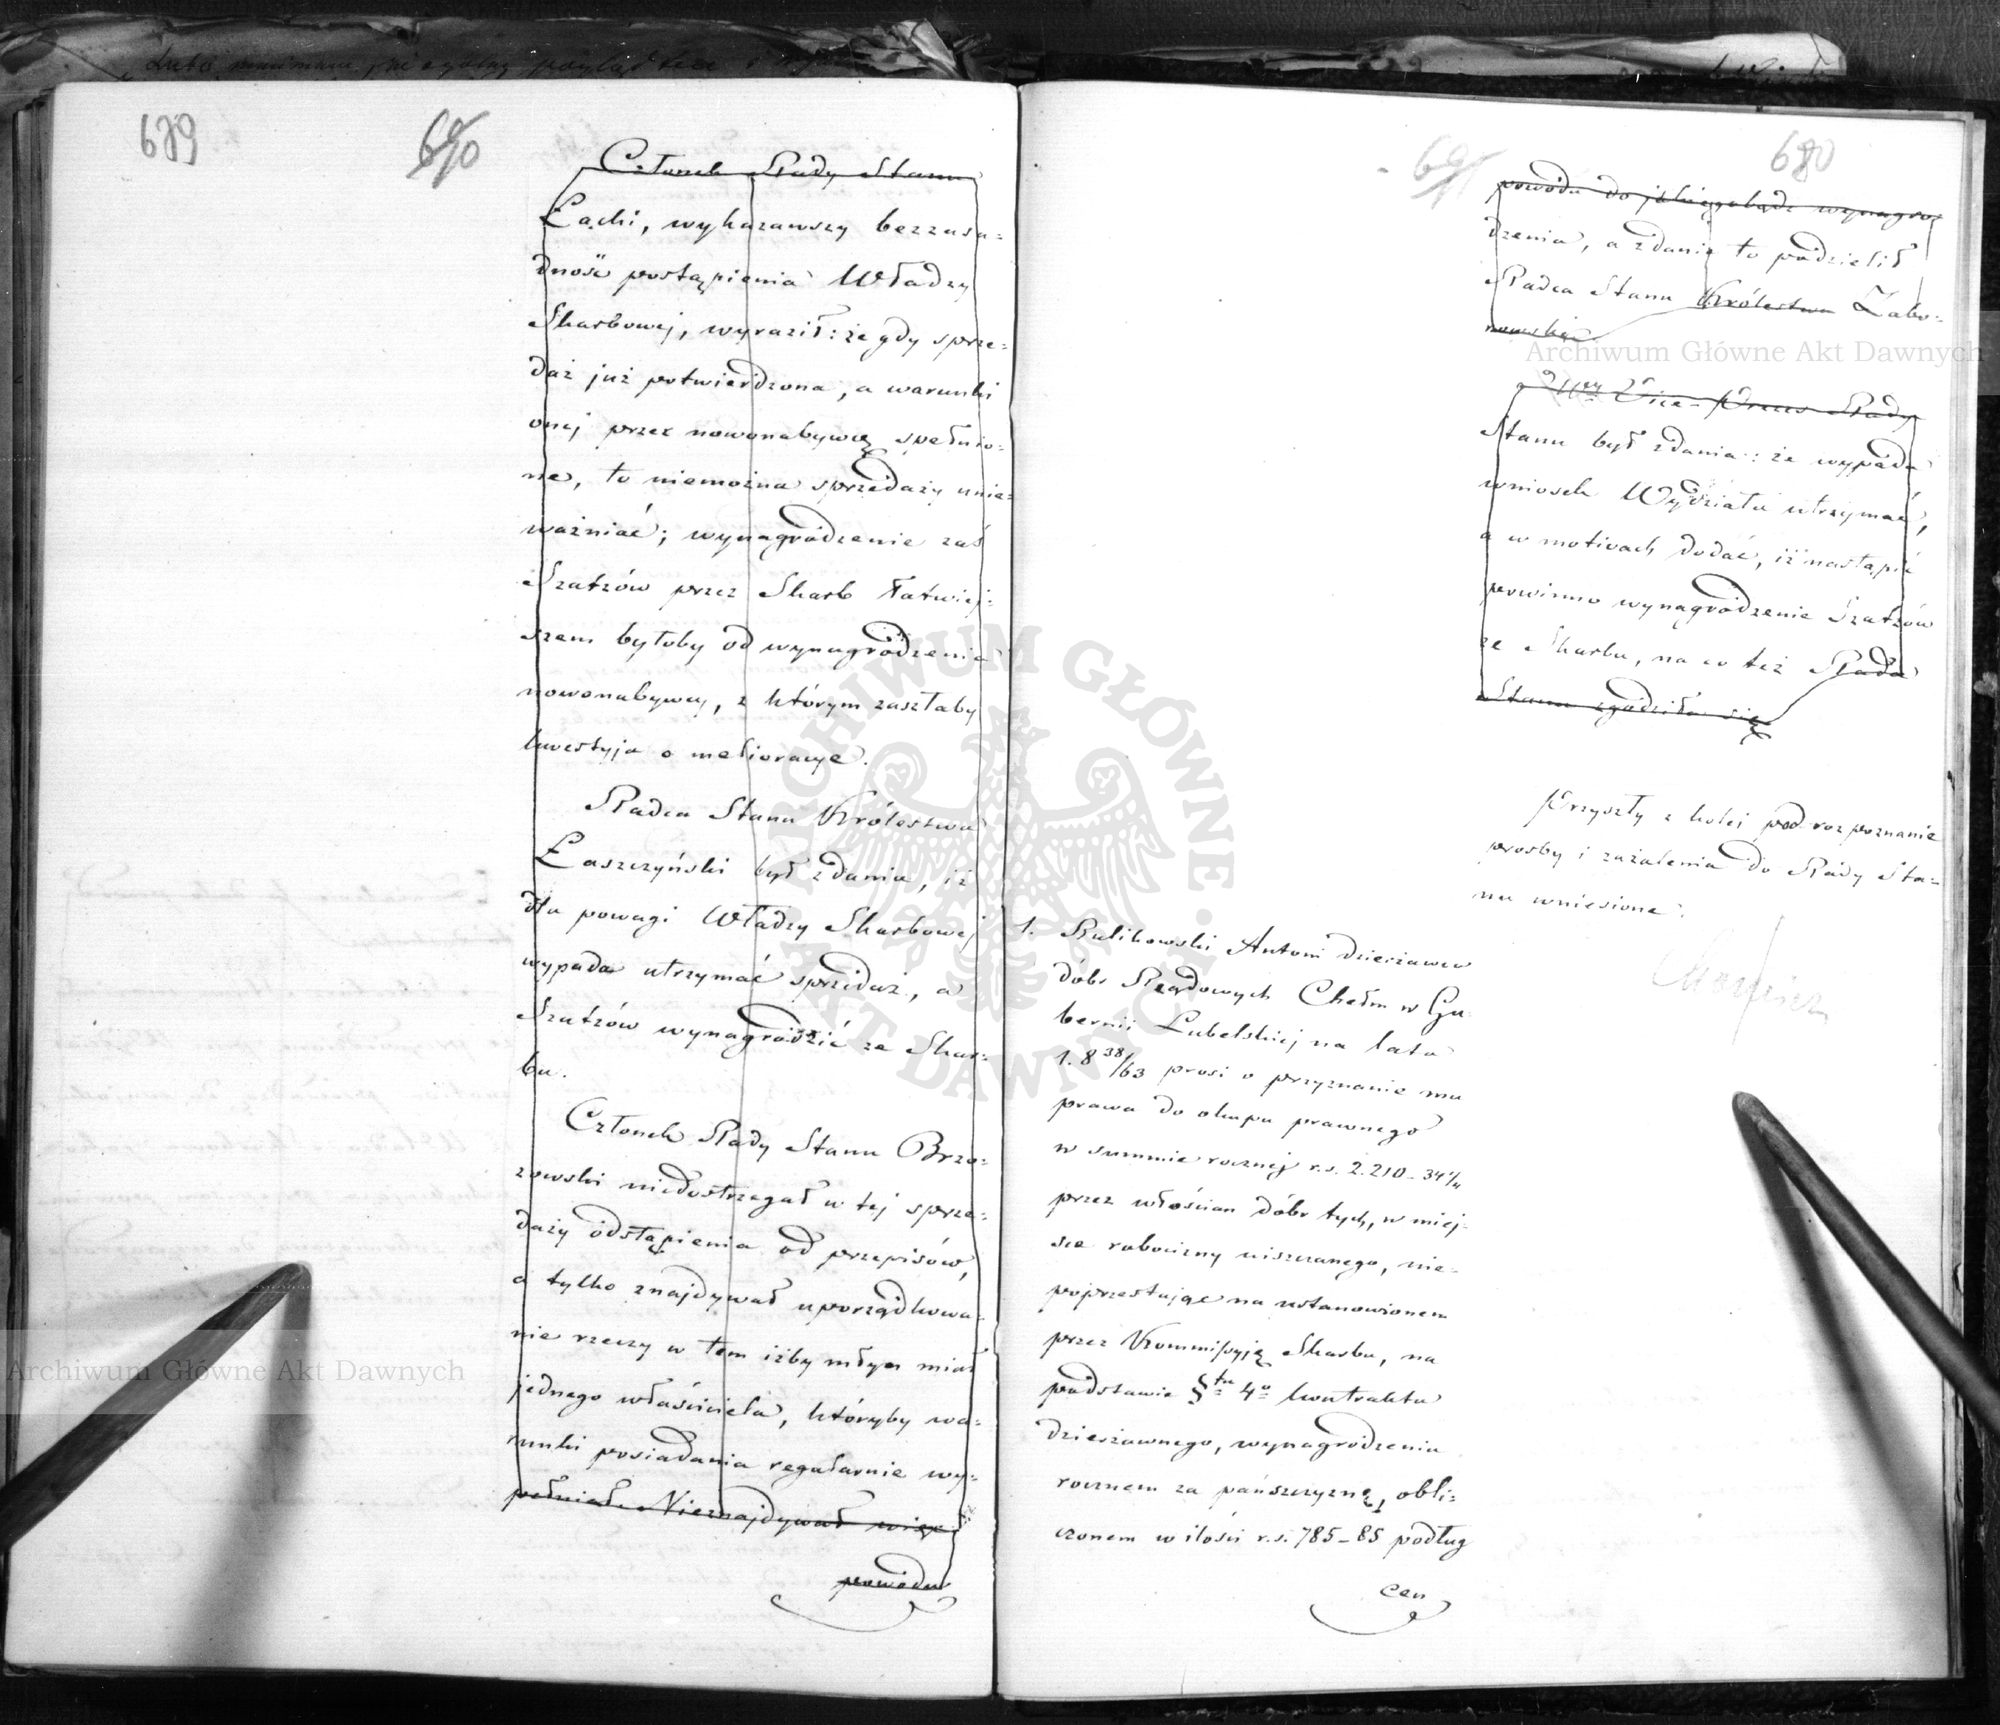 689
690
Członek Rady Stanu
Łącki, wykazawszy bezzasa-
dność postąpienia Władzy
Skarbowej, wyraził: że gdy sprze-
daż już potwierdzona, a warunki
onej przez nowonabywcę spełnio-
ne, to niemożna sprzedaży unie-
ważniać; wynagrodzenie zaś
Szatzów przez Skarb łatwiej-
szem byłoby od wynagrodzenia
nowonabywcy, z którym zaszłaby
kwestyja o melioracye.
Radca Stanu Królestwa
Łaszczyński był zdania, iż
dla powagi Władzy Skarbowej
wypada utrzymać sprzedaż, a
Szatzów wynagrodzić ze Skar-
bu.
Członek Rady Stanu Brzo-
zowski niedostrzegał w tej sprze-
daży odstąpienia od przepisów,
a tylko znajdywał uporządkowa-
nie rzeczy w tem iżby młyn miał
jednego właściciela, któryby wa-
runki posiadania regularnie wy-
pełniał. Nieznajdywał więc
powodu
691
680
powodu do jakiegobądź wynagro-
dzenia, a zdanie to podzielił
Radca Stanu Królestwa Zabo-
rowski.
Vice-Prezes Rady
Stanu był zdania: że wypada
wniosek Wydziału utrzymać,
a w motivach dodać, iż nastąpić
powinno wynagrodzenie Szatzów
ze Skarbu, na co też Rada
Stanu zgodziła się.
Przyszły z kolei pod rozpoznanie
prosby i zażalenia do Rady Sta-
nu wniesione.
1. Kulikowski Antoni dzierżawca
dóbr Rządowych Chełm w Gu-
bernii Lubelskiej na lata
1.8 38/63 prosi o przyznanie mu
prawa do okupu prawnego
w summie rocznej r.s. 2.210-34½
przez włościan dóbr tych, w miej-
sce robocizny uiszczanego, nie-
poprzestając na ustanowionem
przez Kommissyją Skarbu, na
podstawie §tu 4o kontraktu
dzierżawnego, wynagrodzeniu
rocznem za pańszczyznę, obli-
czonem w ilości r.s. 785-85 podług
cen
Archiwum Główne Akt Dawnych
Archiwum Główne Akt Dawnych
ARCHIWUM GŁÓWNE AKT DAWNYCH